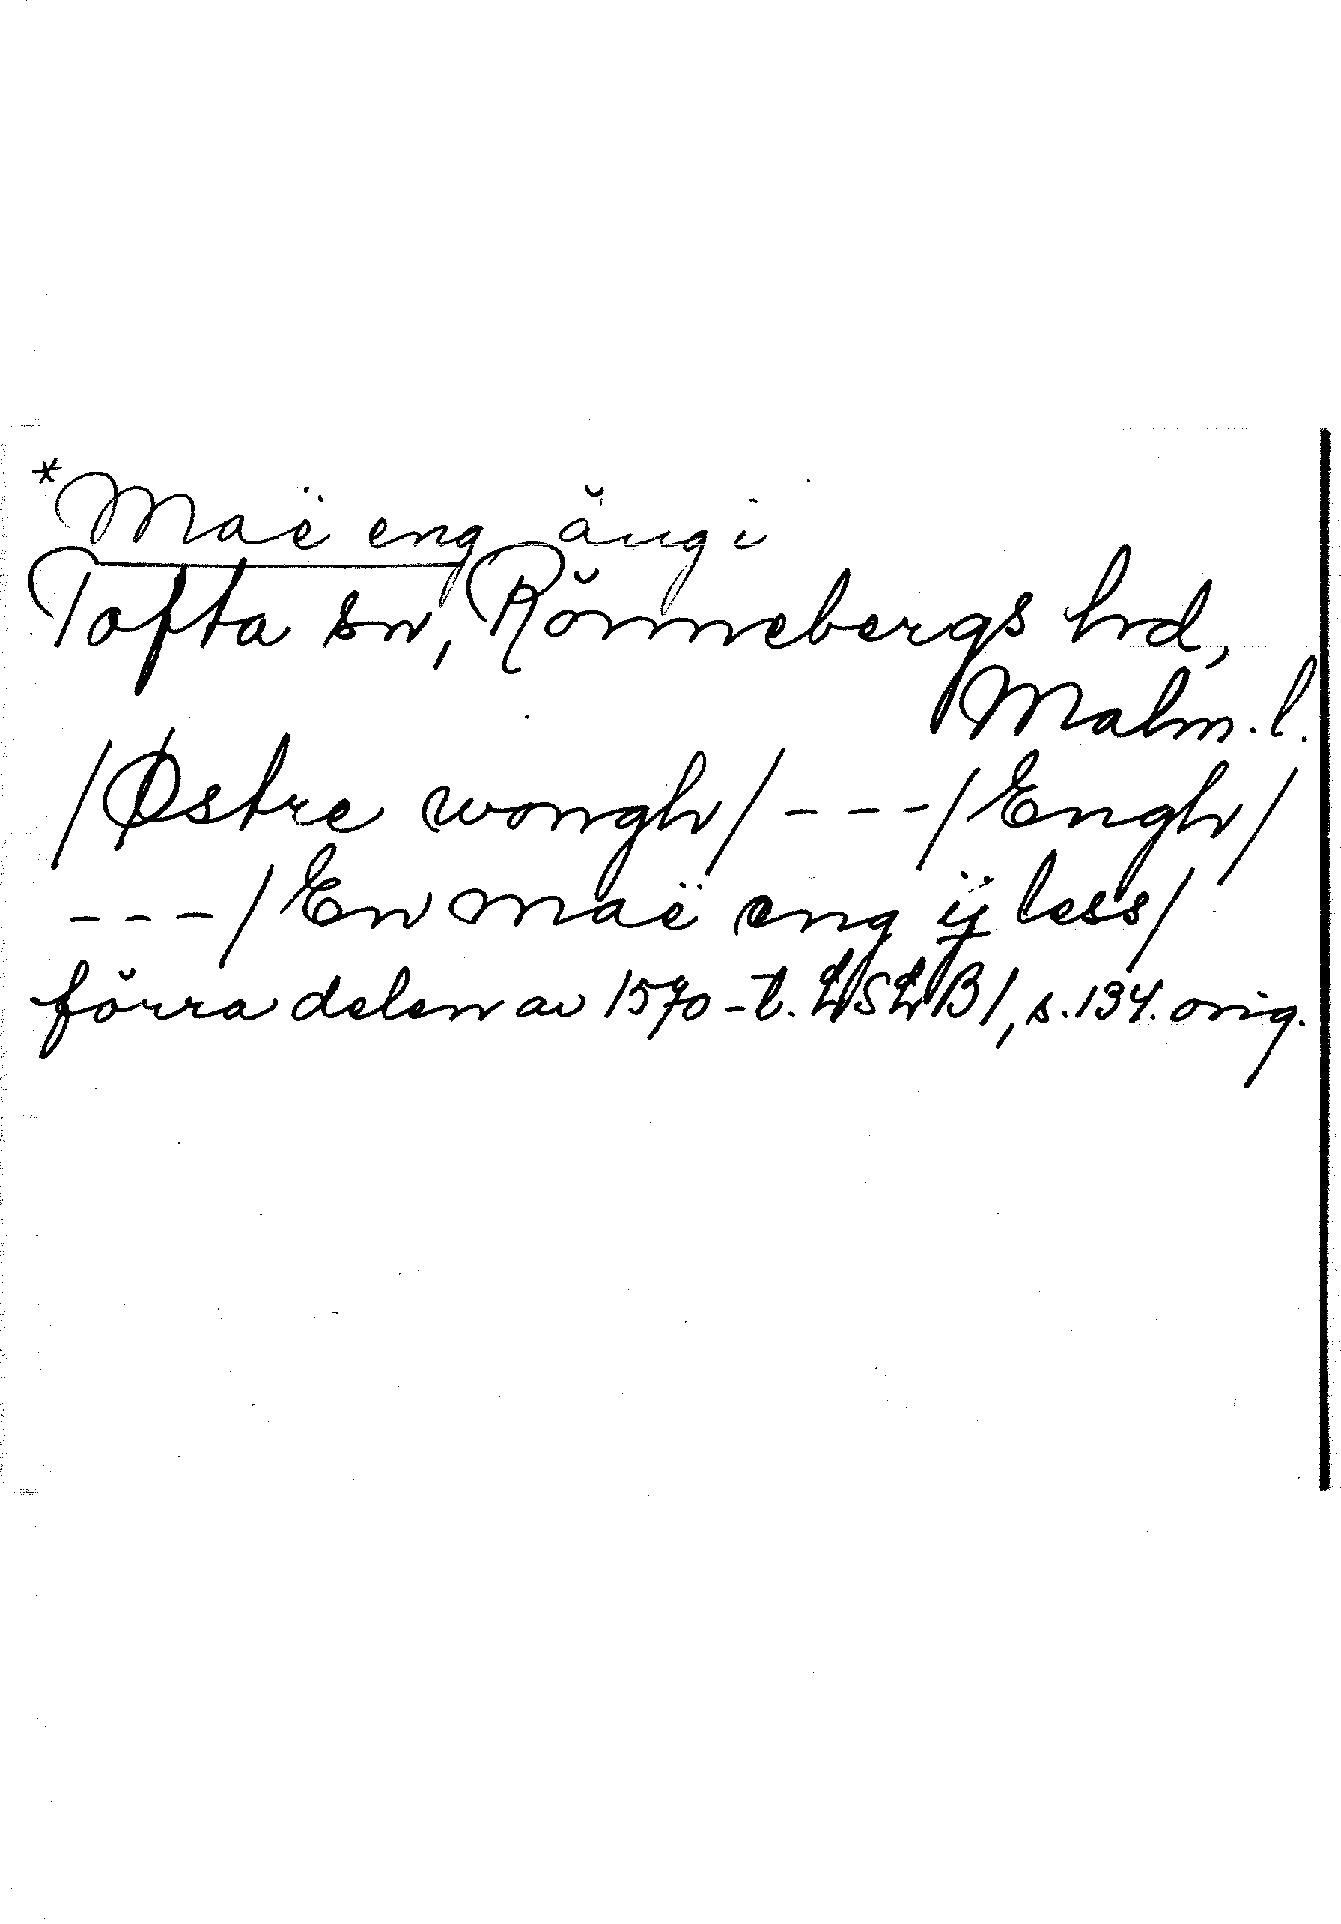 *Maë eng äng i
Tofta sn, Rönnebergs hd,
Malm. l.
/Østre wongh/ - - - /Engh/
- - - /En maë eng ij less/
förra delen av 1570-t. LSLB1, s. 134. orig.